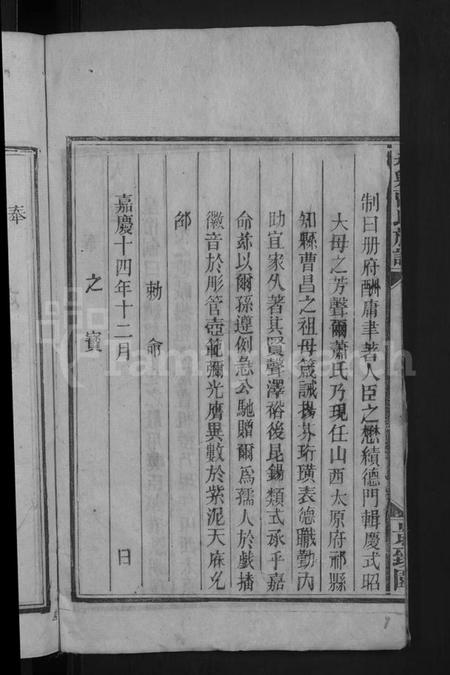 制曰册府酬庸聿著人臣之懋績德門輯慶式昭
大母之芳聲爾蕭氏乃現任山西太原府祁縣
知縣曹昌之祖母箴誡揚芬珩璜表德職勤內
助宜家久著其賢聲澤裕後昆錫類式承乎嘉
命茲以爾孫遵例急公馳贈爾為孺人於戲播
徽音於彤管壼範彌光膺異數於紫泥天庥允
邵
勅命
嘉慶十四年十二月 日
之寶
奉